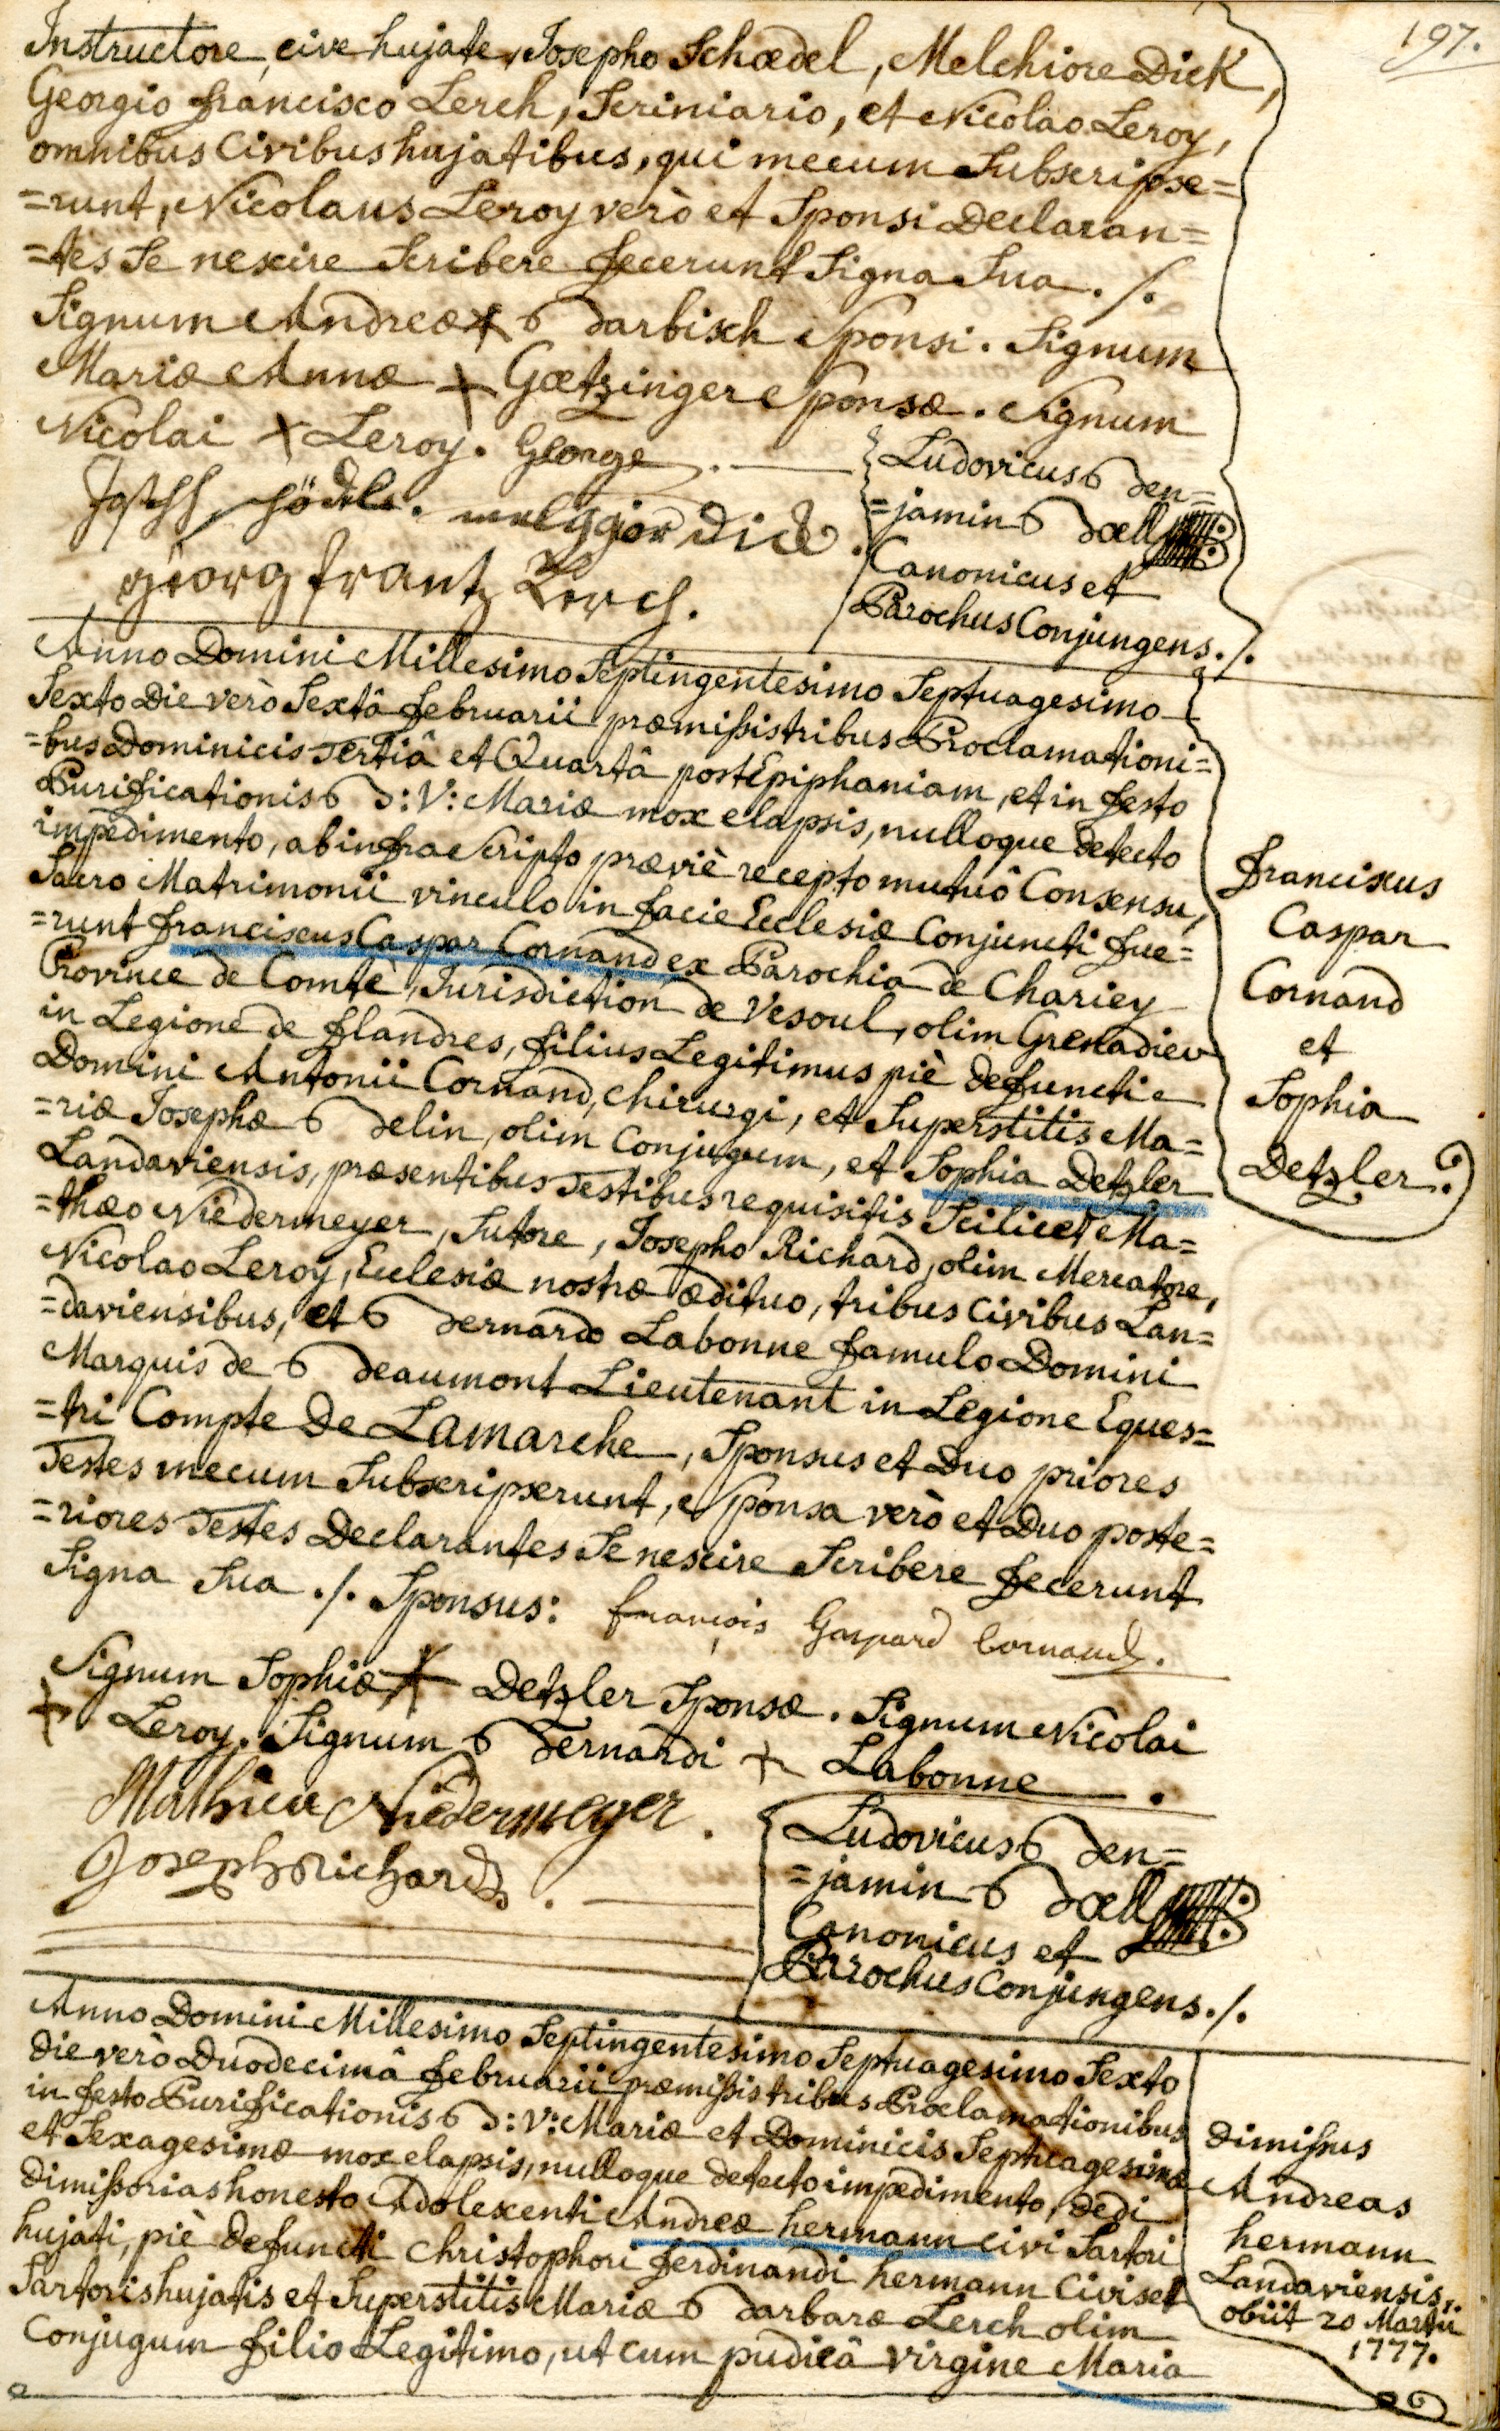 197.
Instructore, cive hujate, Josepho Schœdel, Melchiore Dick,
Georgio francisco Lerch, Scriniario, et Nicolao Leroy,
omnibus Civibus hujatibus, qui mecum Subscripse=
=runt, Nicolaus Leroy verò et Sponsi Declaran=
=tes Se nescire Scribere fecerunt Signa Sua ./.
Signum Andreæ + Barbisch Sponsi. Signum
Mariæ Annæ + Gœtzinger Sponsæ. Signum
Nicolai + Leroy. George.
Ludovicus Ben=
=jamin Bœll
Canonicus et
Parochus Conjungens ./.
Joseph södel. melchior Dick.
georg frantz Lerch.
Anno Domini Millesimo Septingentesimo Septuagesimo
Sexto Die verò Sextâ februarii præmissis tribus Proclamationi=
=bus Dominicis Tertiâ et Quartâ post Epiphaniam, et in festo
Purificationis B: V: Mariæ mox elapsis, nulloque detecto
impedimento, ab infra Scripto præviè recepto mutuô Consensu,
Sacro Matrimonii vinculo in facie Ecclesiæ Conjuncti fue=
=runt franciscus Caspar Cornand ex Parochia de Chariey
Province de Comté, Jurisdiction de Vesoul, olim Grenadier
in Legione de flandres, filius Legitimus piè defuncti
Domini Antonii Cornand, Chirurgi, et Superstitis Ma=
=riæ Josephæ Belin, olim Conjugum, et Sophia Detzler
Landaviensis, præsentibus Testibus requisitis Scilicet Ma=
=thæo Niedermeyer, Sutore, Josepho Richard, olim Mercatore,
Nicolao Leroy, Ecclesiæ nostræ ædituo, tribus Civibus Lan=
=daviensibus, et Bernardo Labonne famulo Domini
Marquis de Beaumont Lieutenant in Legione Eques=
=tri Compte De Lamarche, Sponsus et Duo priores
Testes mecum Subscripserunt, Sponsa verò et Duo poste=
=riores Testes Declarantes Se nescire Scribere fecerunt
Signa Sua ./. Sponsus: françois Gaspard Cornand.
Signum Sophiæ + Detzler Sponsæ. Signum Nicolai
+ Leroy. Signum Bernardi + Labonne.
Mathieu Niedermeyer.
Joseph Richard.
Ludovicus Ben=
=jamin Bœll
Canonicus et
Parochus Conjungens ./.
franciscus
Caspar
Cornand
et
Sophia
Detzler.
Anno Domini Millesimo Septingentesimo Septuagesimo Sexto
die verò Duodecimâ februarii præmissis tribus Proclamationibus
in festo Purificationis B: V: Mariæ et Dominicis Septuagesimæ
et Sexagesimæ mox elapsis, nulloque detecto impedimento, dedi
dimissorias honesto Adolescenti Andreæ hermann civi Sartori
hujati, piè defuncti Christophori ferdinandi hermann Civis et
Sartoris hujatis et Superstitis Mariæ Barbaræ Lerch olim
Conjugum filio Legitimo, ut cum pudicâ virgine Maria
dimissus
Andreas
hermann
Landaviensis,
obiit 20 Martii
1777.